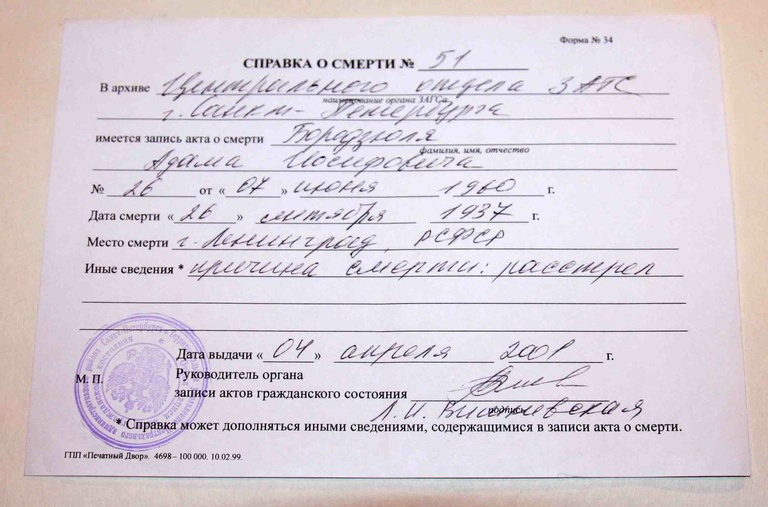 Форма № 34
СПРАВКА О СМЕРТИ № 51
В архиве Центрального отдела ЗАГС
наименование органа ЗАГСа
г. Санкт-Петербурга
имеется запись акта о смерти Бородзюля
фамилия, имя, отчество
Адама Иосифовича
№ 26 от « 07 » июня 1960 г.
Дата смерти « 26 » сентября 1937 г.
Место смерти г. Ленинград, РСФСР
Иные сведения * причина смерти: расстрел
Дата выдачи « 04 » апреля 2001 г.
М. П. Руководитель органа
записи актов гражданского состояния
подпись
Л.И.
* Справка может дополняться иными сведениями, содержащимися в записи акта о смерти.
ГПП «Печатный Двор». 4698–100 000. 10.02.99.